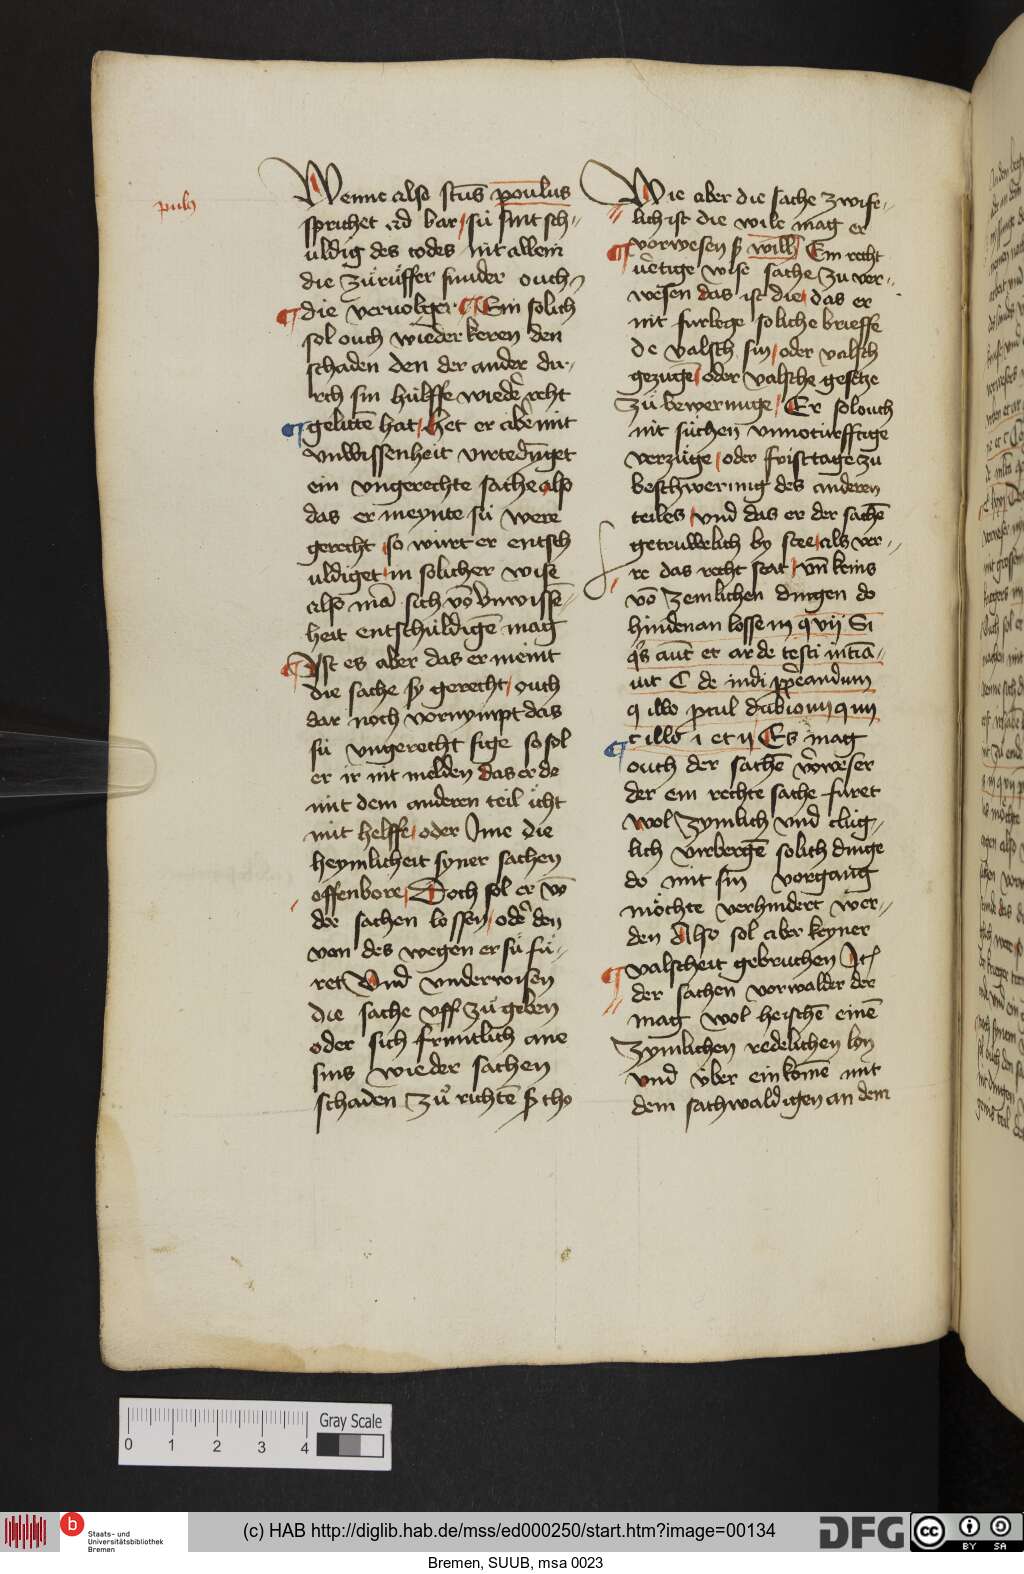 paulus
Wenne also sctūs poulus
sprichet ad bar / sú sint sch=
uldig des todes nit allein
die zúrúffer sunder ouch
die vervolger Ein solich
sol ouch wieder keren den
schaden den der ander du=
rch sin hulffe wiedē recht
gelittē hat / het er abe mit
vnwissenheit virtedinget
ein vngerechte sache also
das er meynte sú were
gerecht so wurt er entsch
uldiget in solicher wise
also mā sich vō vnwissē=
heit entschuldigē mag
Ist es aber das er meint
die sache sy gerecht / ouch
dar noch vornympt das
sú vngerecht sige so sol
er ir nit melden das er de
mit dem anderen teil icht
mit helffe / oder Ime die
heymlicheit syner sachen
offenbore / Doch sol er vō
der sachen lossen / odē den
von des wegen er sú fú=
ret Vnd vnderwisen
die sache vff zú geben
oder sich fruntlich ane
sins wieder sachen
schaden zů richtē ſ tho
Wie aber die sache zwife=
lich ist die wile mag er
vorwesen ſ will Ein recht
vertige wise sache zu ver=
wesen das ist die / das er
nit furlege soliche brieffe
de valsch sin / oder valsch
gezuge / oder valsche gesetze
zú bewerunge / Er sol ouch
nit suchen vnnoturfftige
verzúge / oder frist tage zu
beschwerunig des anderen
teiles / vnd das er der sachē
getruwelich by stee / als ver=
re das recht stat / vn̄ keins
vō zemlichen dingen do
hindenan losse iij q vij Si
q̄s aut et ar de testi intīa=
uit C de iudi ꝓperandum
q illo ꝓcul dubio iij q iiij
c illo i et ij Es mag
ouch der sachē vorweser
der ein rechte sache furet
wol zymlich vnd clúg=
lich virbergē solich dinge
do mit sin vorgang
möchte verhindert wer=
den Also sol aber keyner
valscheit gebruchen It
der sachen vorwalder der
mag wol heischē einē
zymlichen redelichen lon
vnd über ein komē mit
dem sachwaldigen an dem
0 1 2 3 4
Gray Scale
b
Staats- und
Universitätsbibliothek
Bremen
(c) HAB http://diglib.hab.de/mss/ed000250/start.htm?image=00134
DFG
cc BY SA
Bremen, SUUB, msa 0023